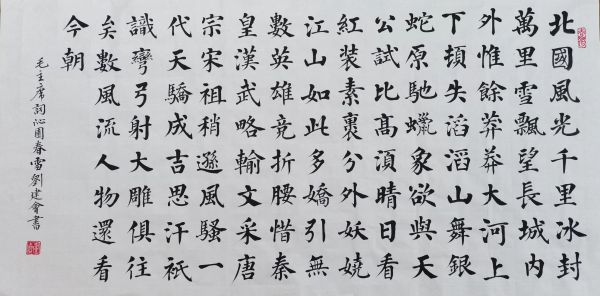 北國風光千里冰封
萬里雪飄望長城内
外惟餘莽莽大河上
下頓失滔滔山舞銀
蛇原馳蠟象欲與天
公試比髙須晴日看
紅装素裹分外妖嬈
江山如此多嬌引無
數英雄竞折腰惜秦
皇漢武略輸文采唐
宗宋祖稍遜風騷一
代天驕成吉思汗衹
識彎弓射大雕俱往
矣數風流人物還看
今朝
毛主席詞沁園春雪劉建會書